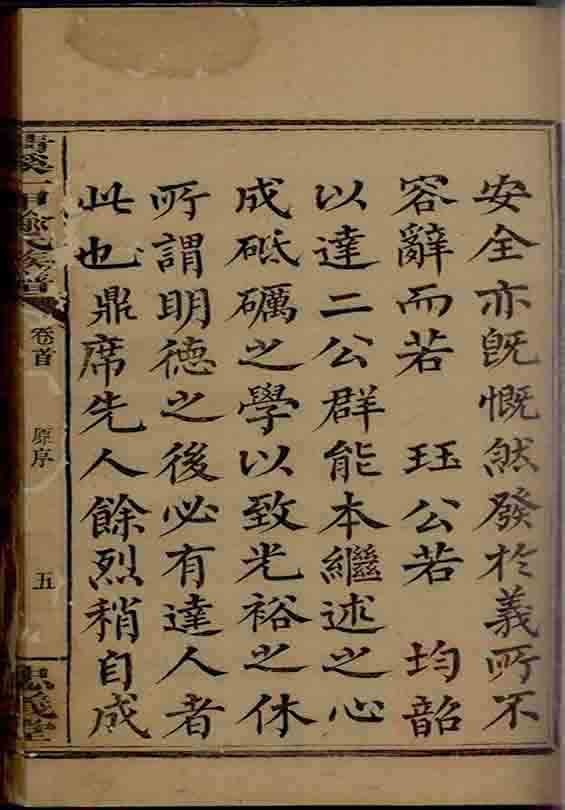 安全亦既慨然發於義所不
容辭而若 珏公若 均韶
以達二公群能本繼述之心
成砥礪之學以致光裕之休
所謂明德之後必有達人者
此也鼎席先人餘烈稍自成
卷首 原序 五
忠義堂